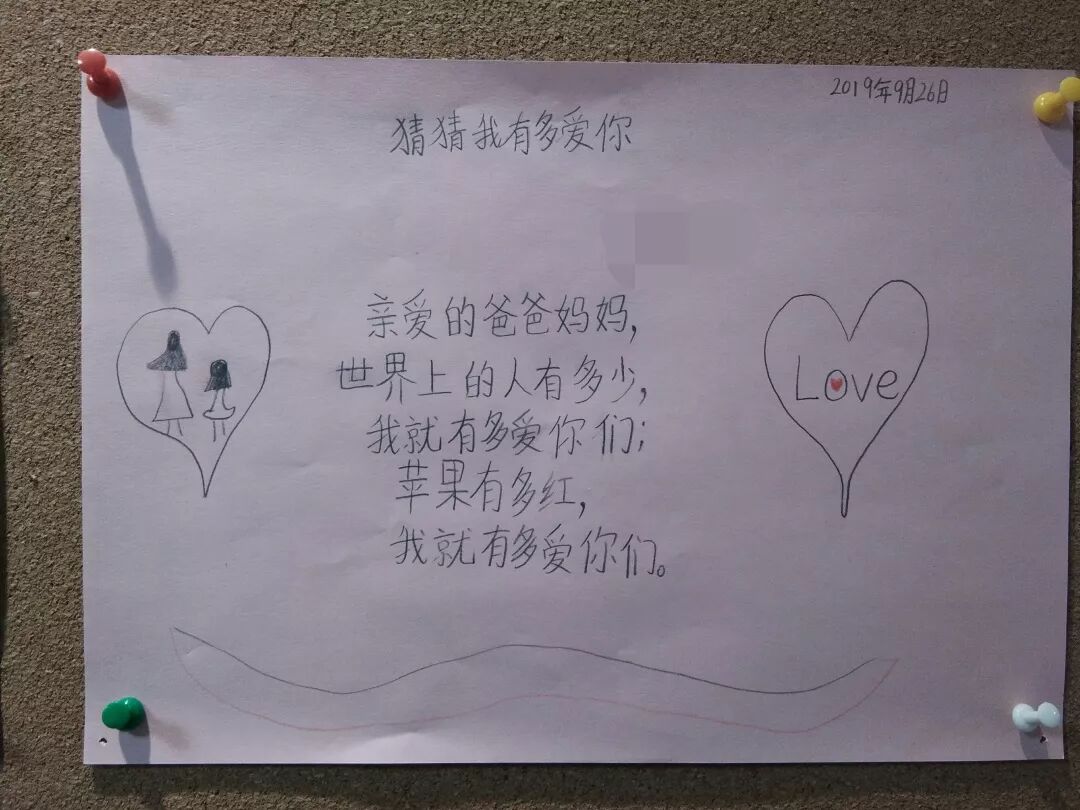 2019年9月26日
猜猜我有多爱你
亲爱的爸爸妈妈,
世界上的人有多少,
我就有多爱你们;
苹果有多红,
我就有多爱你们。
Love